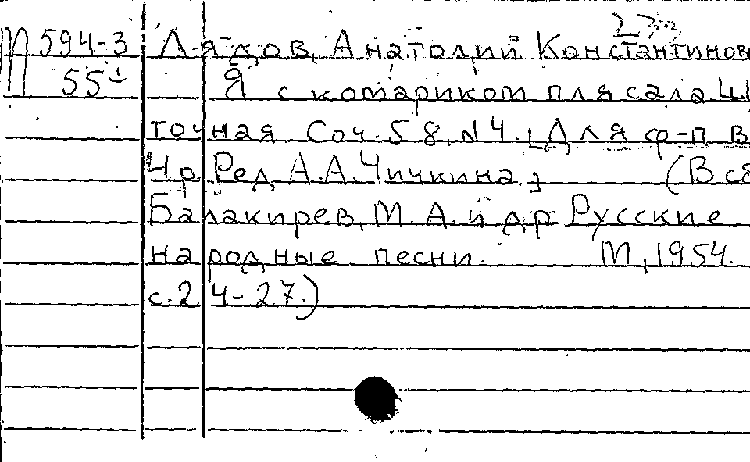 П 594-3 Лядов, Анатолий Константинов
55 Я с комариком плясала. Ш
точная Соч. 58, N4. [Для ф-п в
4 р. Ред. А.А. Чичкина.] (В сб
Балакирев, М.А. и др. Русские
народные песни. М, 1954.
с. 24-27.)